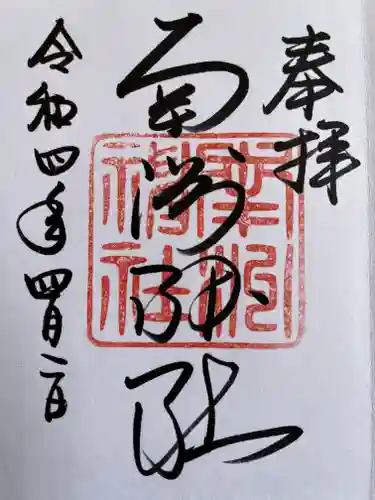 奉拝
南洲神社
令和四年四月二日
南洲
神社